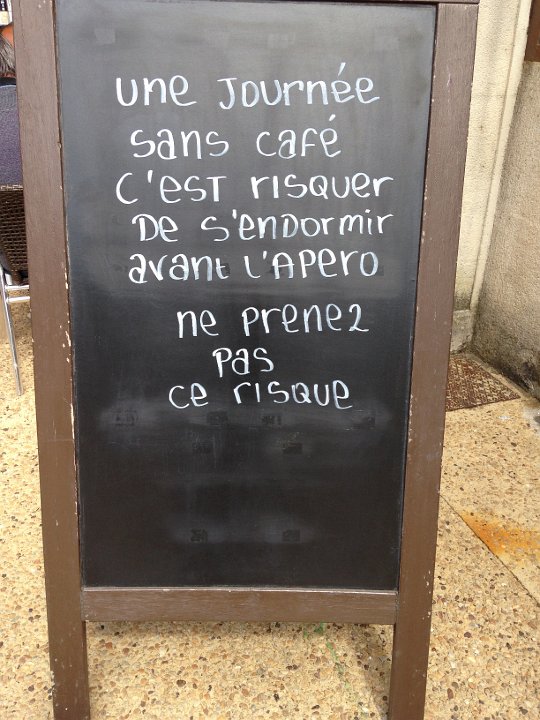 une journée
sans café
c'est risquer
de s'endormir
avant l'apero
ne prenez
pas
ce risque